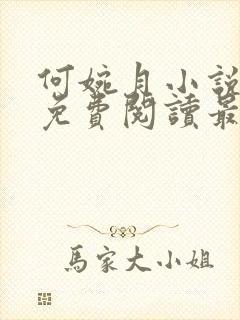 何婉月小說
免費閱讀最
馬家大小姐